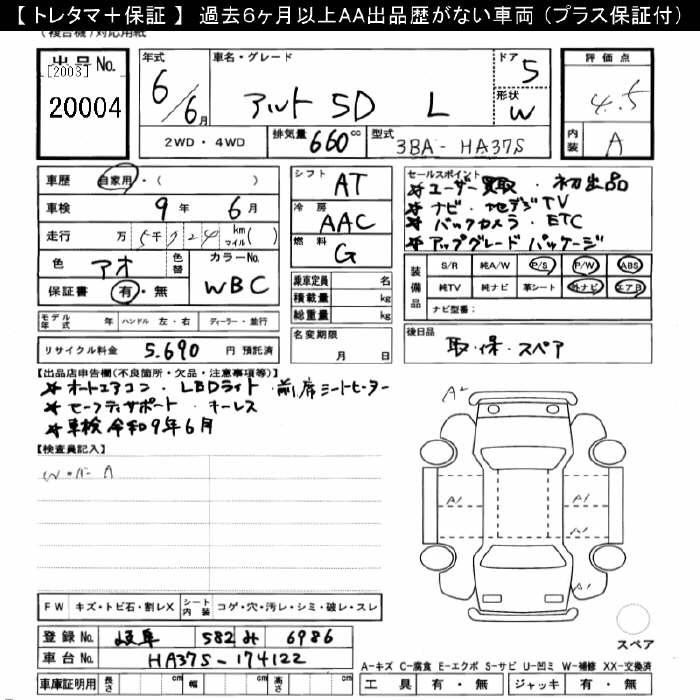 【 トレタマ＋保証 】 過去6ヶ月以上AA出品歴がない車両（プラス保証付）
(複合機)対応用紙
出品No.
[2003]
20004
年式
6/6月
車名・グレード
アルト 5D L
ドア
5
形状
W
2WD・4WD
排気量 660cc
型式 3BA-HA37S
評価点
4.5
内装
A
車歴 自家用・( )
車検 9年 6月
走行 万 5千724 km マイル( )
色 アオ 色替
カラーNo. WBC
保証書 有・無
シフト AT
冷房 AAC
燃料 G
乗車定員 名
積載量 kg
総重量 kg
セールスポイント
★ユーザー買取・初出品
★ナビ・地デジTV
★バックカメラ・ETC
★アップグレードパッケージ
装備品
S/R 純A/W P/S P/W ABS
純TV 純ナビ 革シート 外ナビ エアB
ナビ型番：
モデル年式 年 ハンドル 左・右 ディーラー・並行
リサイクル料金 5,690 円 預託済
名変期限
月 日
後日品
取・保・スペア
【出品店申告欄(不良箇所・欠品・注意事項等)】
★オートエアコン・LEDライト・前席シートヒーター
★セーフティサポート・キーレス
★車検令和9年6月
【検査員記入】
W・バー A
A2
A1
A1
A1
A1
FW キズ・トビ石・割レX シート内装 コゲ・穴・汚レ・シミ・破レ・スレ
登録No. 岐阜 582 み 6986
車台No. HA37S-174122
スペア
A-キズ C-腐食 E-エクボ S-サビ U-凹ミ W-補修 XX-交換済
車庫証明用 長さ cm 幅 cm 高さ cm
工具 有・無 ジャッキ 有・無